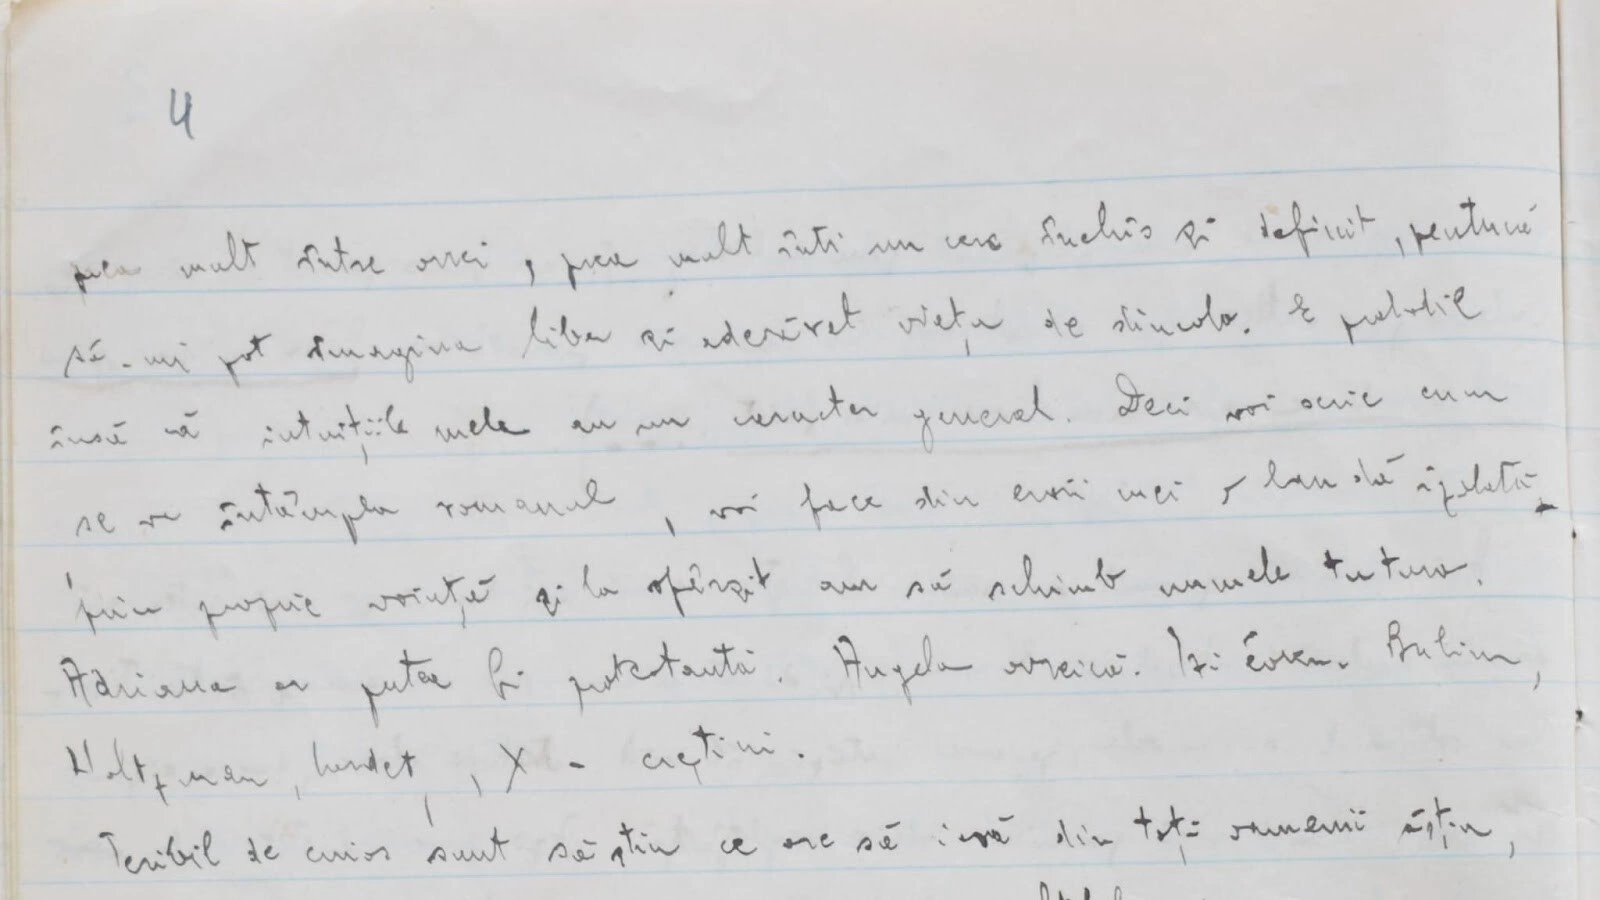 4
prea mult între ovrei, prea mult într un cerc închis și definit, pentrucă
să-mi pot imagina liber și adevărat viața de dincolo. E probabil
însă că intuițiile mele au un caracter general. Deci voi scrie cum
se va întâmpla romanul, voi face din eroii mei o bandă izolată
prin proprie voință și la sfârșit am să schimb numele tuturor.
Adriana ar putea fi protestantă. Angela ovreică. Izi evreu. Bubi
man, X - creștini.
Teribil de curios sunt să știu ce are să iasă din toți oamenii ăștia,